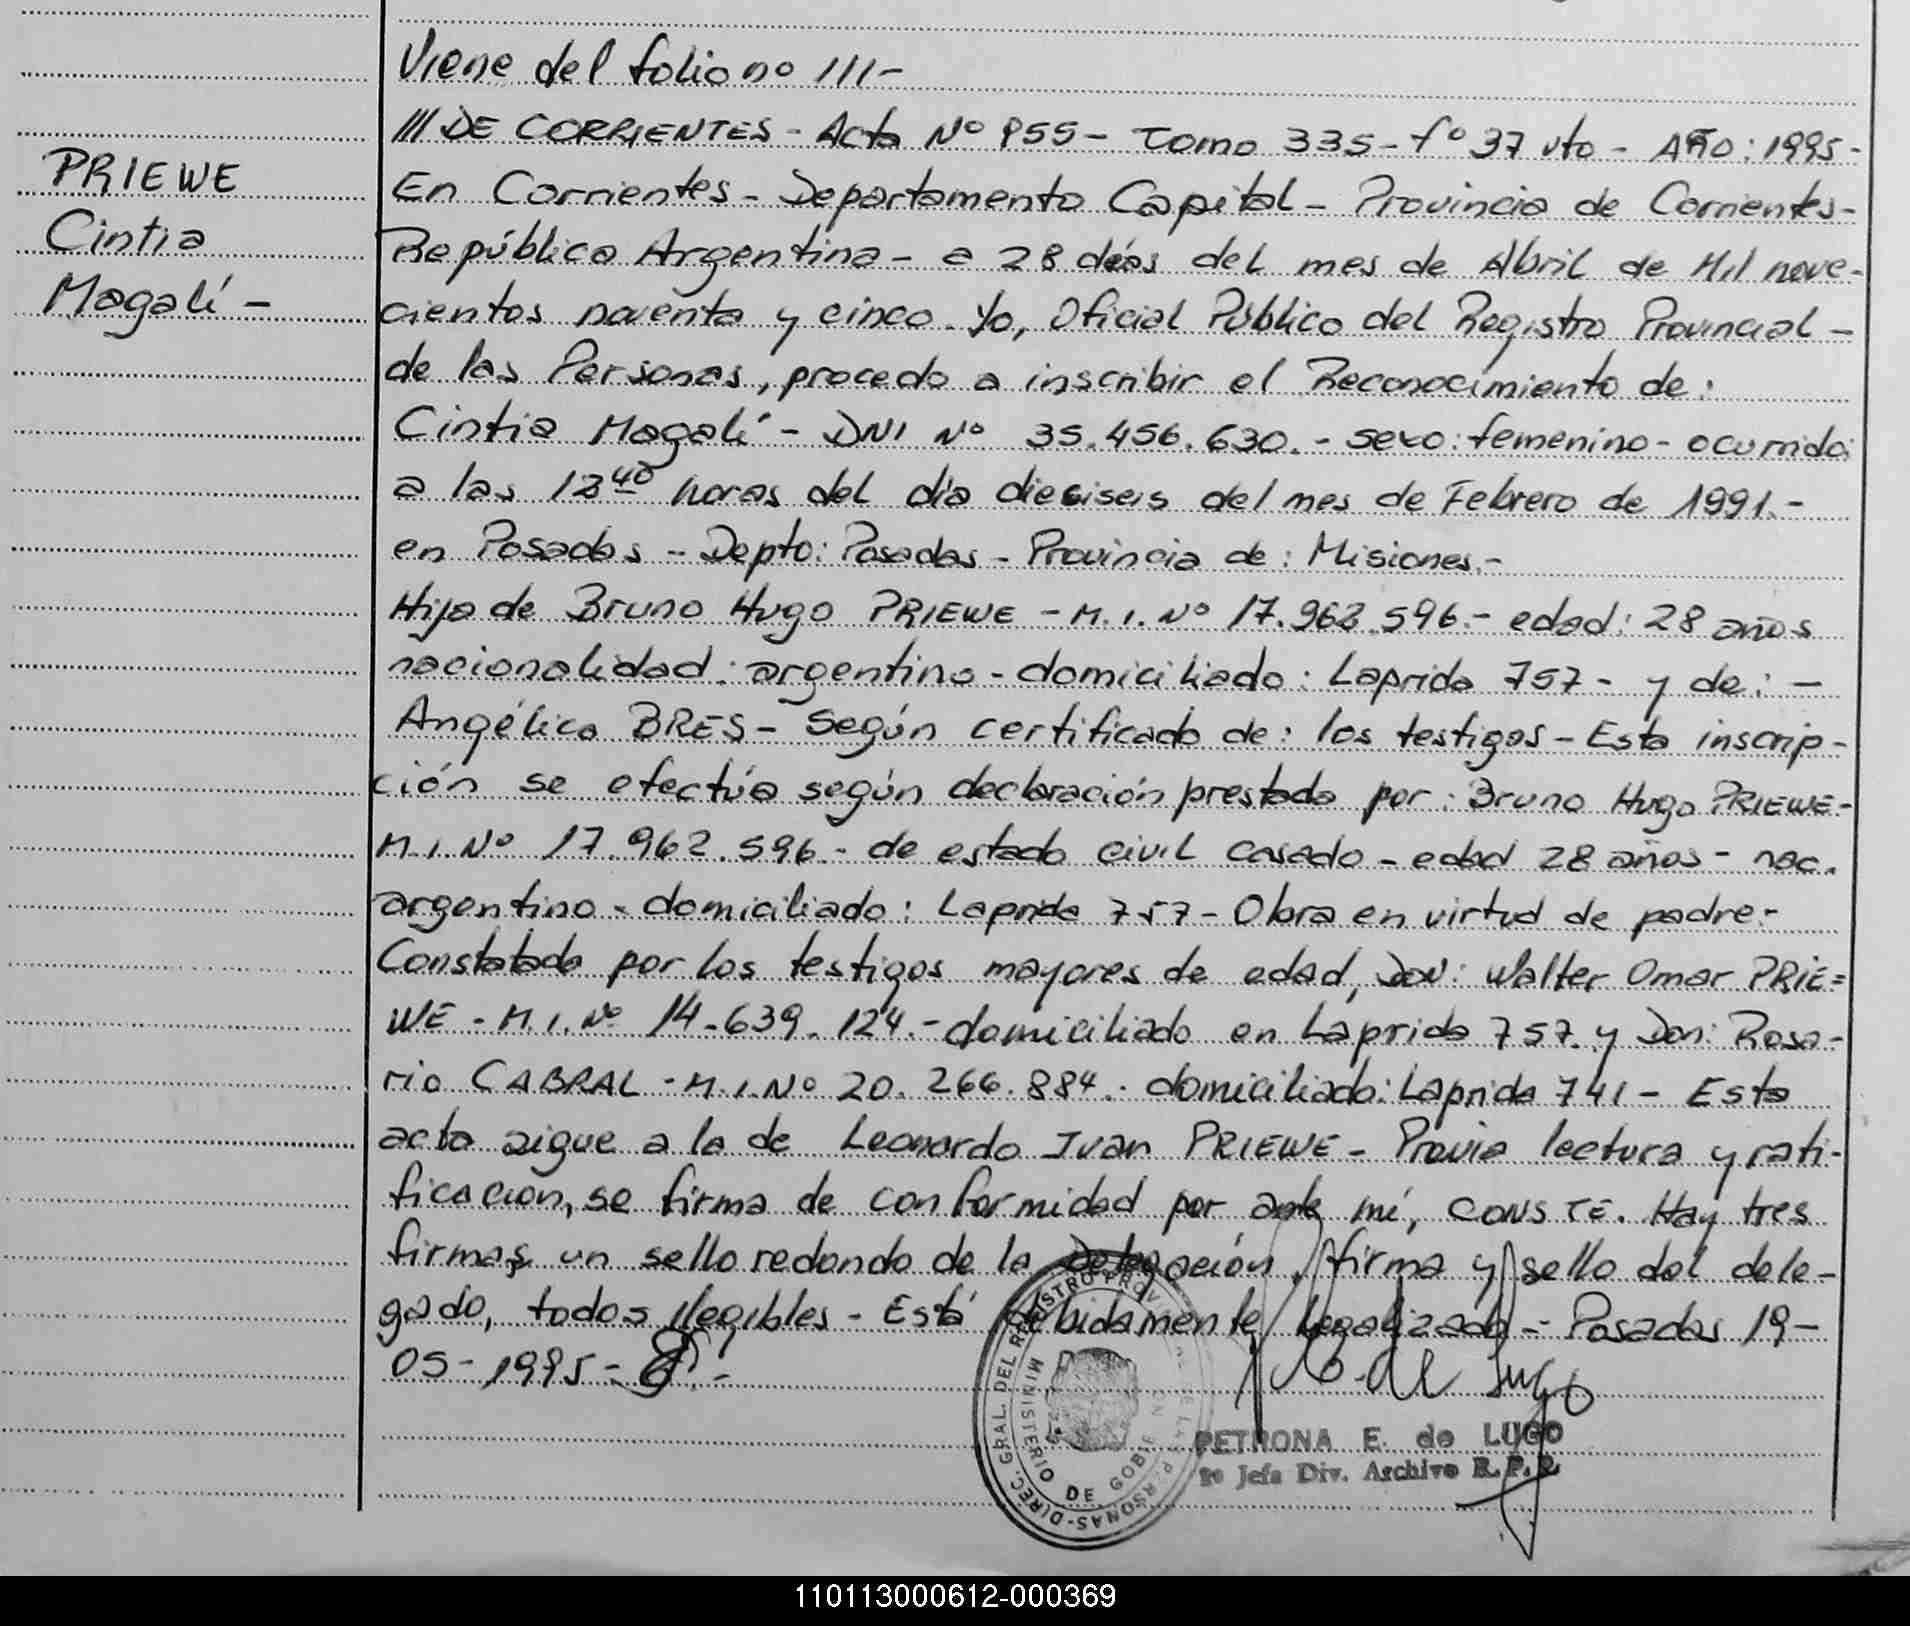 Viene del folio nº 111-
/// DE CORRIENTES - Acta Nº 955 - Tomo 335 - fº 37 vto - Año: 1995-
PRIEWE
Cintia
Magalí -
En Corrientes - Departamento Capital - Provincia de Corrientes-
República Argentina - a 28 días del mes de Abril de Mil nove-
cientos noventa y cinco. Yo, Oficial Público del Registro Provincial -
de las Personas, procedo a inscribir el Reconocimiento de:
Cintia Magalí - DNI Nº 35.456.630.- sexo: femenino - ocurrido:
a las 12 40 horas del día dieciseis del mes de Febrero de 1991.-
en Posadas - Depto: Posadas - Provincia de: Misiones.-
Hija de Bruno Hugo PRIEWE - M.I. Nº 17.962.596.- edad: 28 años
nacionalidad: argentino - domiciliado: Laprida 757 - y de: -
Angélica BRES - Según certificado de: los testigos - Esta inscrip-
ción se efectúa según declaración prestada por: Bruno Hugo PRIEWE-
M.I. Nº 17.962.596.- de estado civil casado - edad 28 años - nac.
argentino - domiciliado: Laprida 757 - Obra en virtud de padre.-
Constatado por los testigos mayores de edad, Don: Walter Omar PRIE=
WE - M.I. Nº 14.639.124.- domiciliado en Laprida 757. y Don: Rosa-
rio CABRAL - M.I. Nº 20.266.884. domiciliado: Laprida 741 - Esta
acta sigue a la de Leonardo Ivan PRIEWE - Previa lectura y rati-
ficacion, se firma de conformidad por ante mí, CONSTE. Hay tres
firmas, un sello redondo de la Delegación, firma y sello del dele-
gado, todos ilegibles - Está debidamente legalizada - Posadas 19-
05-1995-
DIREC. GRAL. DEL REGISTRO PROVINCIAL DE LAS PERSONAS
MINISTERIO DE GOBIERNO
PETRONA E. de LUGO
2º Jefa Div. Archivo R.P.P.
110113000612-000369